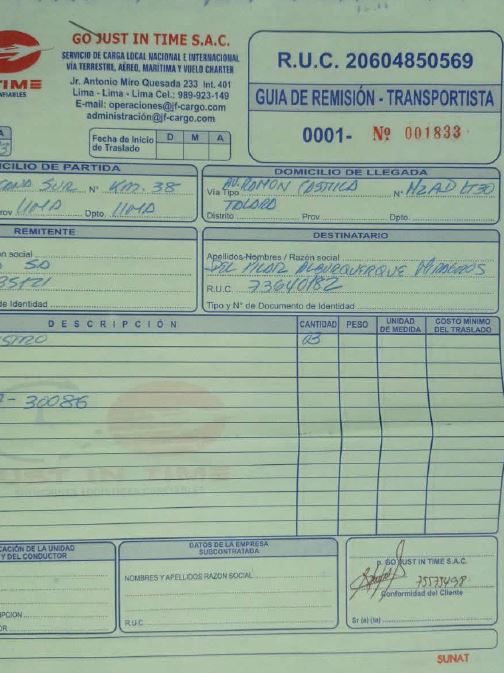 GO JUST IN TIME S.A.C.
SERVICIO DE CARGA LOCAL NACIONAL E INTERNACIONAL
VÍA TERRESTRE, AÉREO, MARÍTIMA Y VUELO CHARTER
Jr. Antonio Miro Quesada 233 Int. 401
Lima - Lima - Lima Cel.: 989-923-149
E-mail: operaciones@jf-cargo.com
administración@jf-cargo.com
TIME
R.U.C. 20604850569
GUIA DE REMISIÓN - TRANSPORTISTA
0001- Nº 001833
A
Fecha de Inicio de Traslado D M A
CILIO DE PARTIDA
SUR Nº KM. 38
rov LIMA Dpto. LIMA
DOMICILIO DE LLEGADA
Vía Tipo AV. RAMON CASTILLA Nº
Distrito Prov Dpto.
REMITENTE
n social
SD
de Identidad
DESTINATARIO
Apellidos-Nombres / Razón social
DEL PILAR ALBURQUERQUE MILAGROS
R.U.C. 73640182
Tipo y N° de Documento de Identidad
DESCRIPCIÓN CANTIDAD PESO UNIDAD DE MEDIDA COSTO MÍNIMO DEL TRASLADO
03
- 30086
CACIÓN DE LA UNIDAD
Y DEL CONDUCTOR
IPCION
OR
DATOS DE LA EMPRESA
SUBCONTRATADA
NOMBRES Y APELLIDOS RAZON SOCIAL
R.U.C
p. GO JUST IN TIME S.A.C.
75575498
Conformidad del Cliente
Sr (a) (ta)
SUNAT